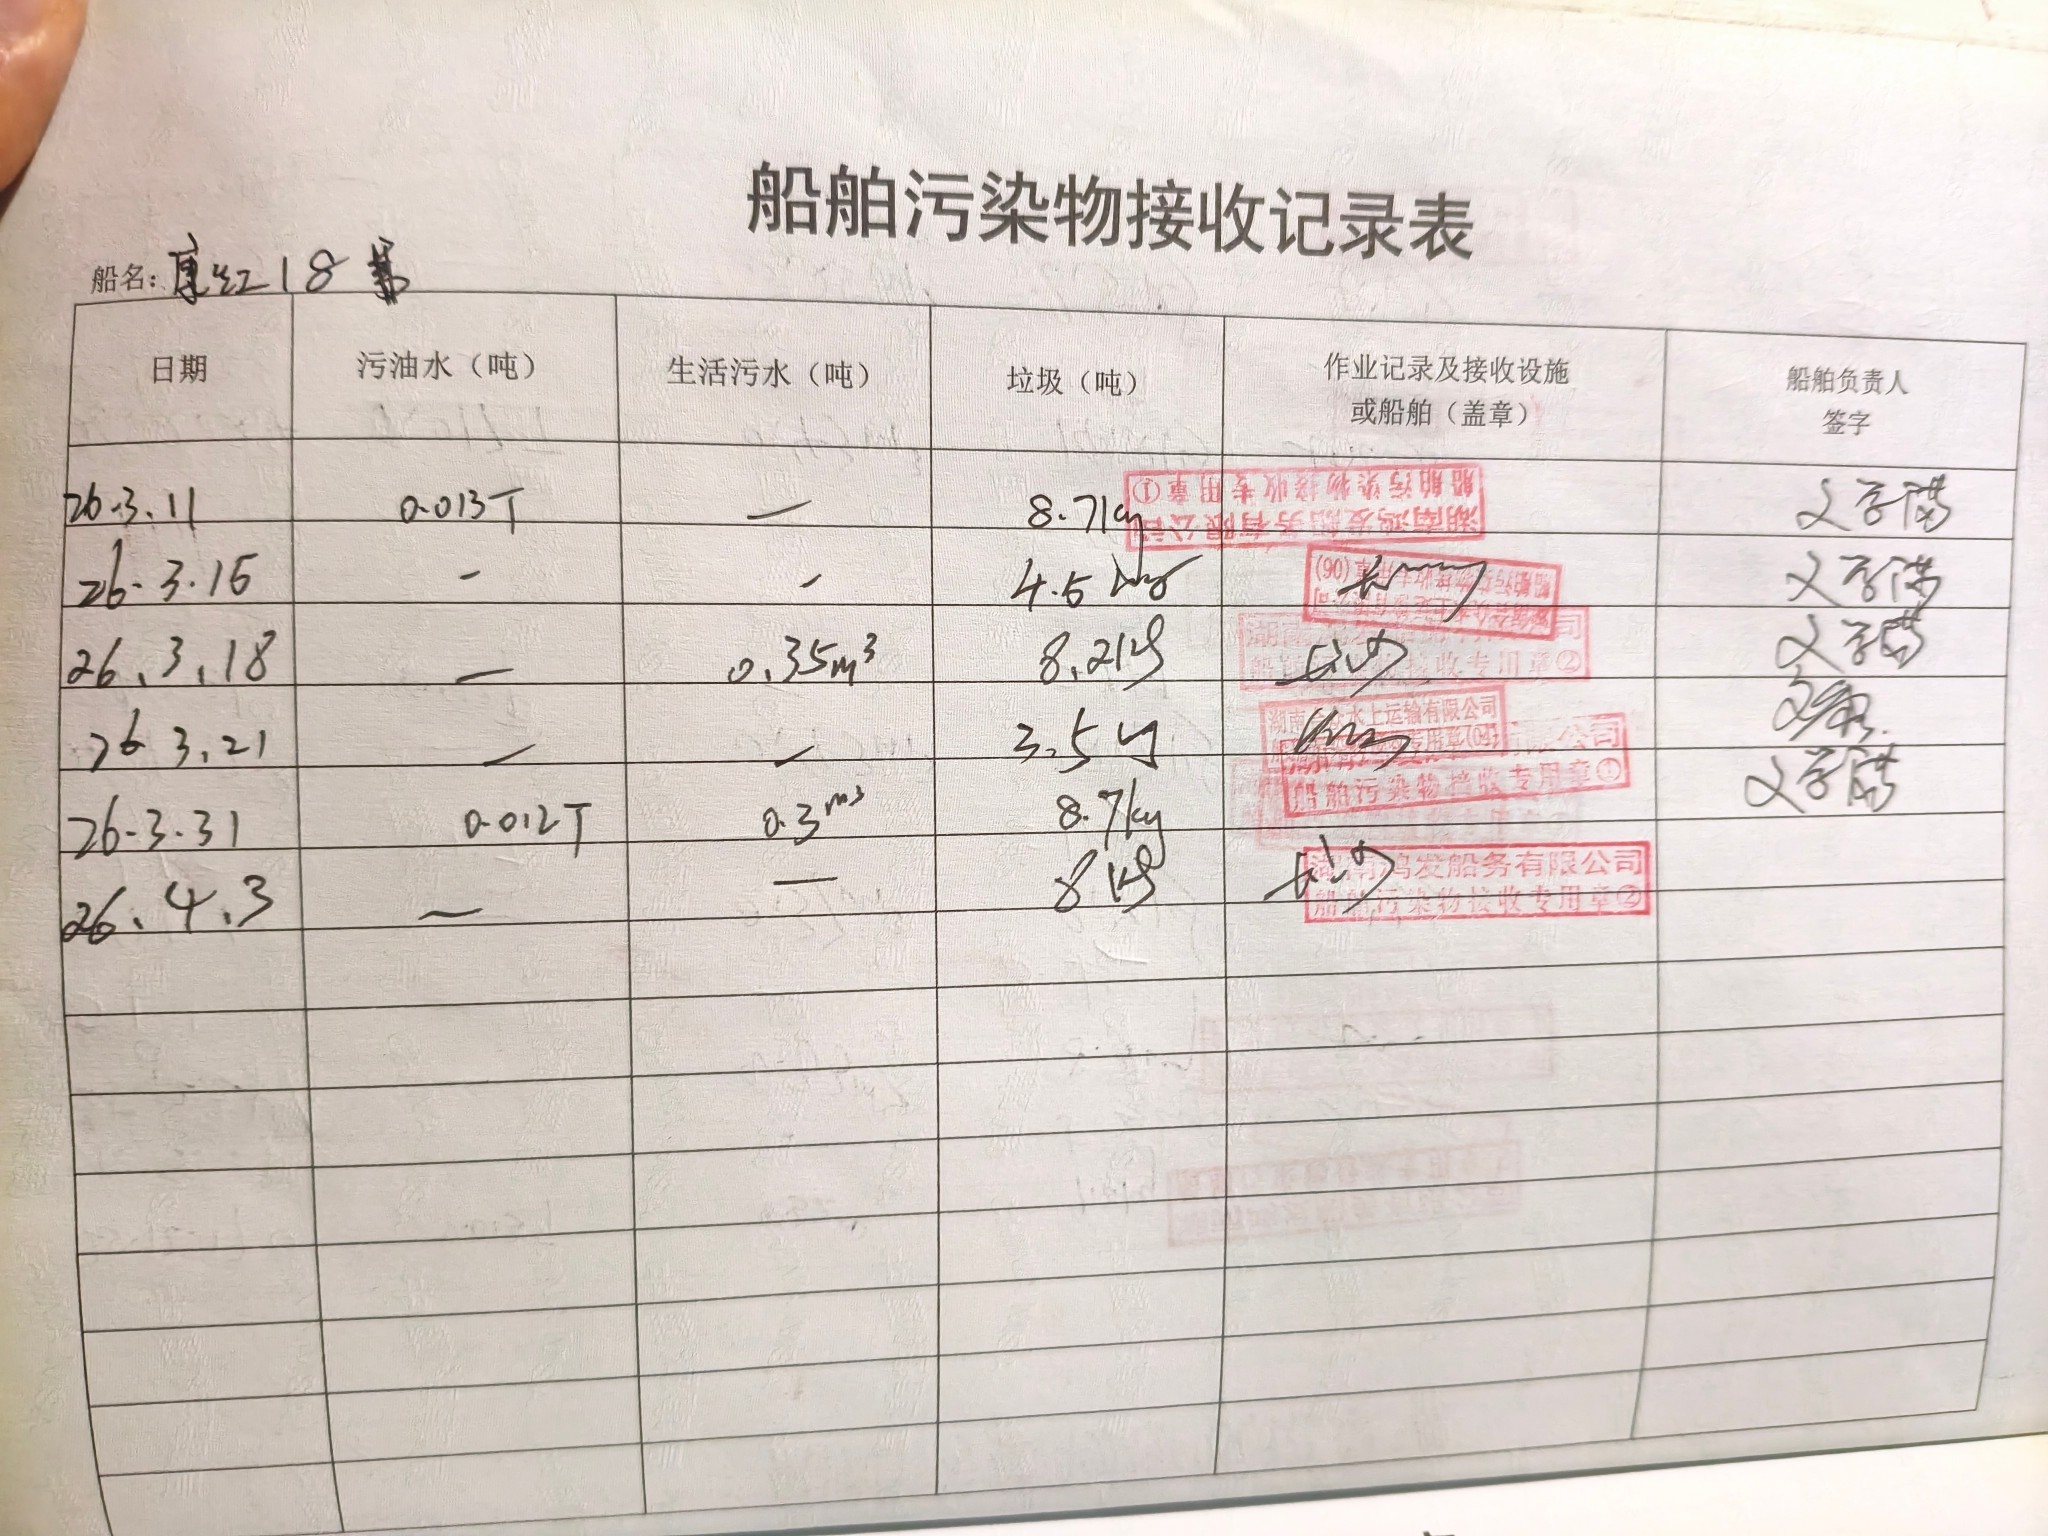 船舶污染物接收记录表
船名: 红18
日期 污油水（吨） 生活污水（吨） 垃圾（吨） 作业记录及接收设施 或船舶（盖章） 船舶负责人 签字
26.3.11 0.013T — 8.7kg 湖南鸿发船务有限公司 船舶污染物接收专用章① 文学满
26.3.15 - - 4.5kg 船舶污染物接收专用章(06) 文学满
26.3.18 — 0.35m³ 8.2kg 长沙 湖南鸿发船务有限公司 船舶污染物接收专用章② 文学满
26 3.21 — — 3.5kg 水上运输有限公司 专用章
26.3.31 0.012T 0.3m³ 8.7kg 有限公司 船舶污染物接收专用章① 文学满
26.4.3 — — 8kg 长沙 湖南鸿发船务有限公司 船舶污染物接收专用章②